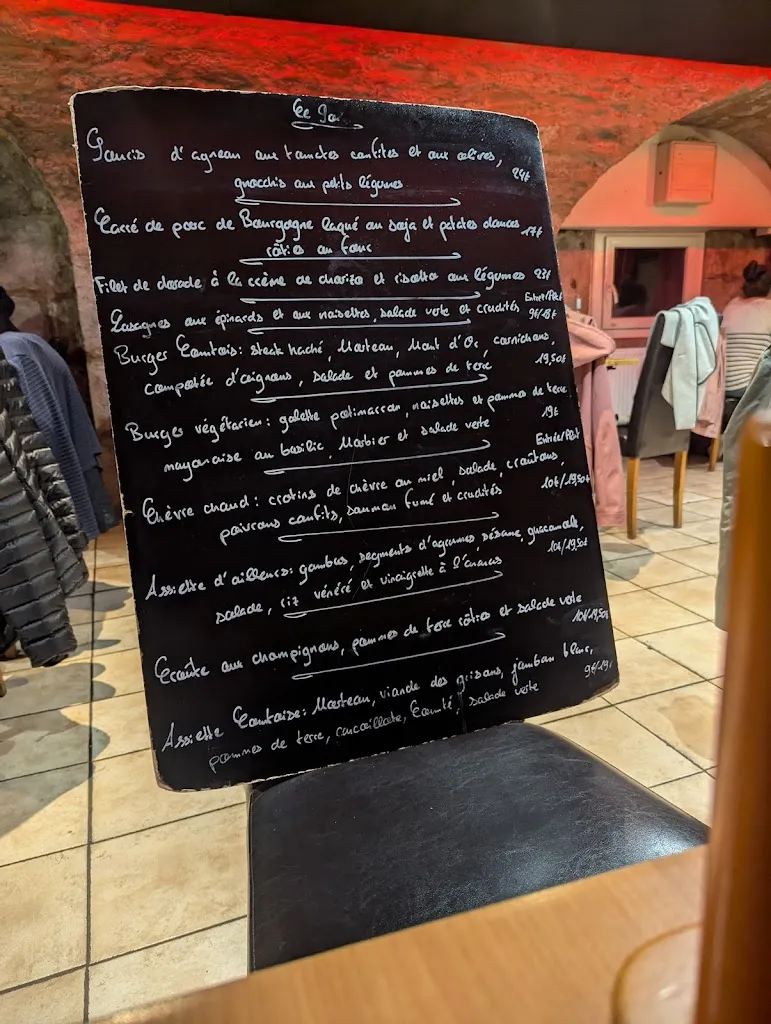 Souris d'agneau aux tomates confites et aux olives, 24€
gnocchis aux petits légumes
Carré de porc de Bourgogne laqué au soja et patates douces 17€
rôties au four
Filet de dorade à la crème de chorizo et risotto aux légumes 23€
Lasagnes aux épinards et aux noisettes, salade verte et crudités Entrée/Plat
9€/18€
Burger Comtois: steak haché, Morteau, Mont d'Or, cornichons,
compotée d'oignons, salade et pommes de terre 19,50€
Burger végétarien: galette potimarron, noisettes et pommes de terre
mayonnaise au basilic, Morbier et salade verte 19€
Entrée/Plat
Chèvre chaud: crotins de chèvre au miel, salade, croûtons,
poivrons confits, saumon fumé et crudités 10€/19,50€
Assiette d'ailleurs: gambas, segments d'agrumes, sésame, guacamole,
salade, riz vénéré et vinaigrette à l'ananas 10€/19,50€
Croûte aux champignons, pommes de terre rôties et salade verte
10€/19,50€
Assiette Comtoise: Morteau, viande des grisons, jambon blanc,
pommes de terre, cancoillotte, Comté, salade verte 9€/19